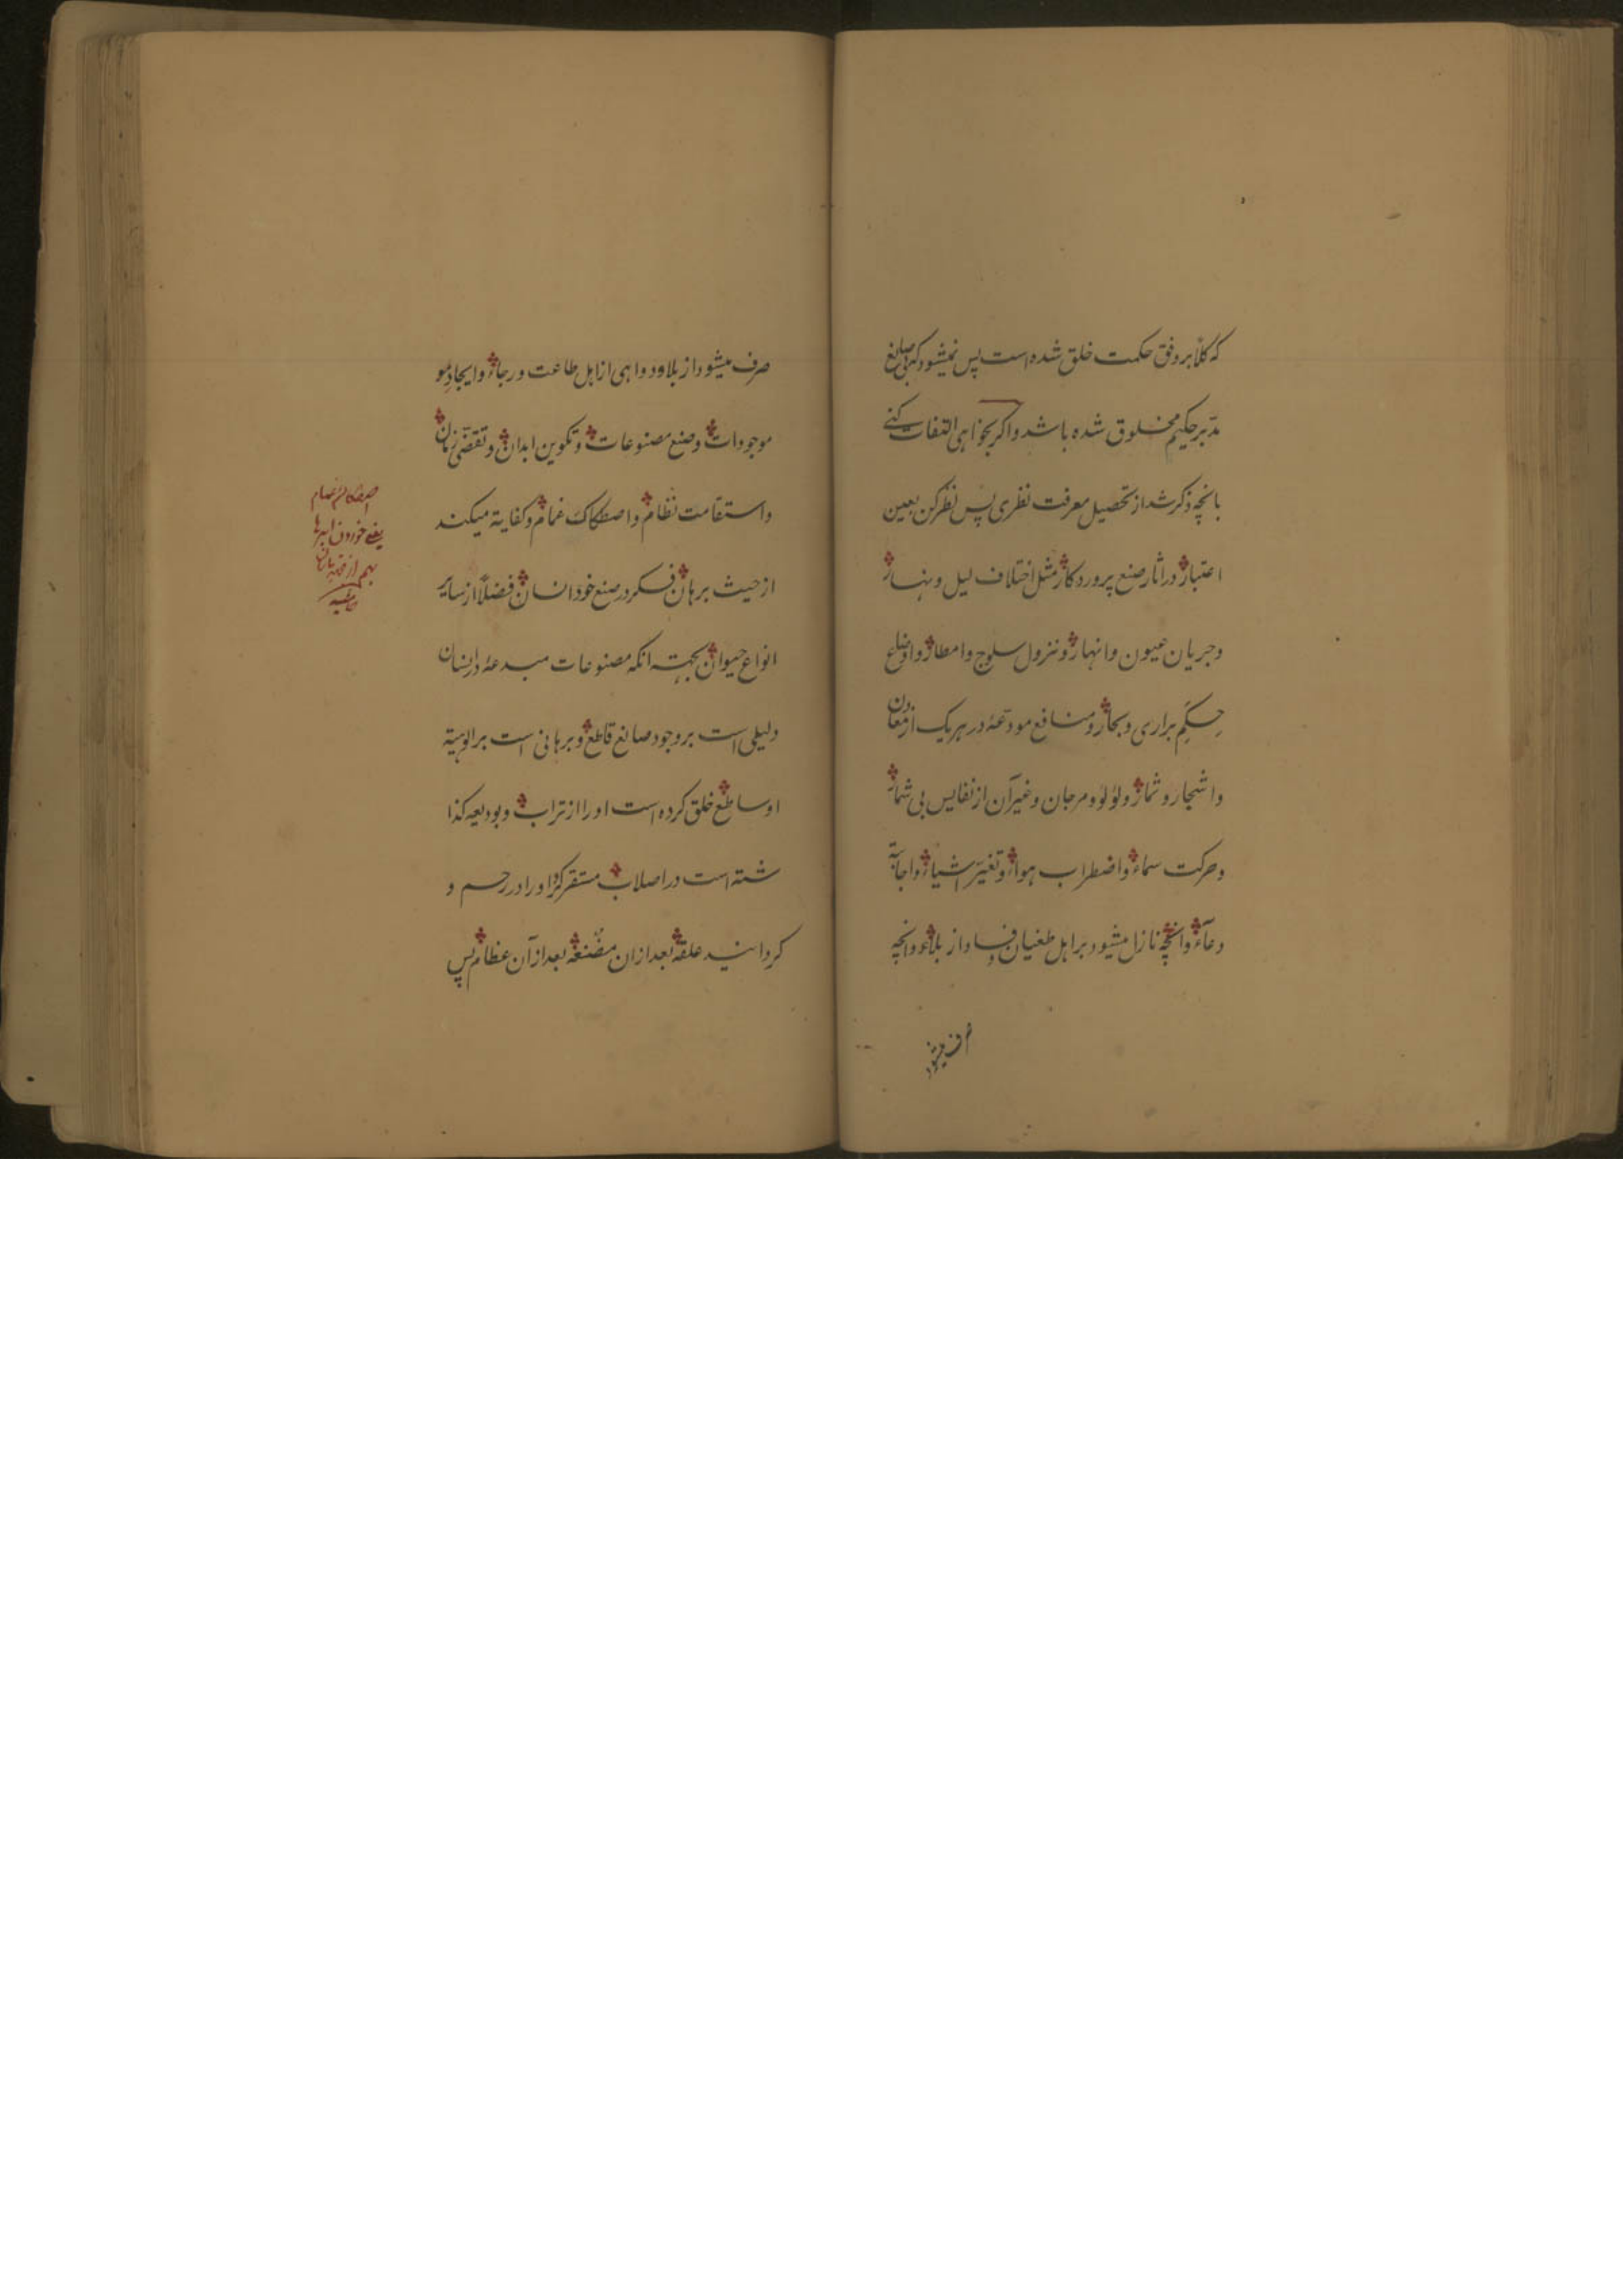 که کلاً بر وفق حکمت خلق شده است پس نمیشود که بی صانع
مدبر حکیم مخلوق شده باشد و اکر بخواهی التفات کنے
بانچه ذکر شد از تحصیل معرفت نظری پس نظر کن بعین
اعتبار در اثار صنع پروردکار مثل اختلاف لیل و نهار
و جریان عیون و انهار و نزول سلوج و امطار و اوضاع
حِکَمِ براری و بحار و منافع مودعهٔ در هریک از معادن
و اشجار و ثمار و لؤلؤ و مرجان و غیر آن از نفایس بی شمار
و حرکت سماء و اضطراب هواء و تغیّر اشیاء و اجابة
دعآء و آنچه نازل میشود بر اهل طغیان و فساد از بلاء و انچه
صرف میشود
صرف میشود از بلا و دواهی از اهل طاعت و رجاء و ایجاد
موجودات و صنع مصنوعات و تکوین ابدان و تقضّی زمان
و استقامت نظام و اصطکاک غمام و کفایة میکند
از حیث برهان فکر در صنع خود انسان فضلاً از سایر
انواع حیوان بجهته انکه مصنوعات مبدعهٔ در انسان
دلیلی است بر وجود صانع قاطع و برهانی است بر الوهیة
او ساطع خلق کرده است او را از تراب و بودیعه کذا
شته است در اصلاب مستقر کرد او را در رحم و
کردانید علقه بعد از ان مضغه بعد از آن عظام پس
اصطکاک غمام
یعنے خوردن ابرها
بهم از